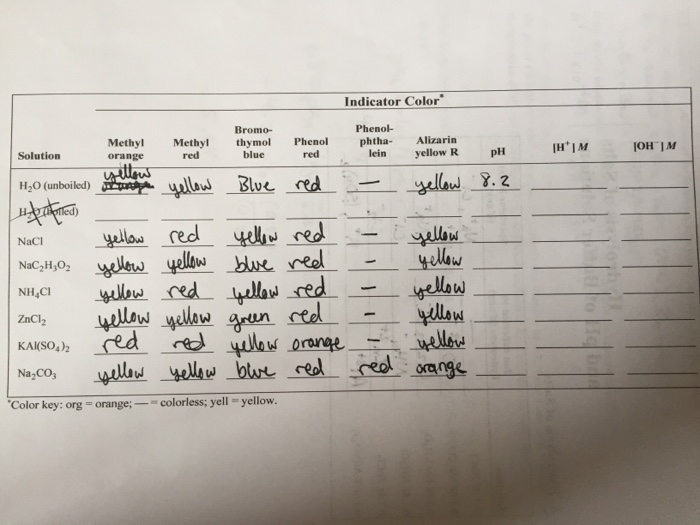 Indicator Color*
Solution Methyl orange Methyl red Bromo-thymol blue Phenol red Phenol-phtha-lein Alizarin yellow R pH [H⁺] M [OH⁻] M
H₂O (unboiled) yellow yellow Blue red — yellow 8.2
H₂O (boiled)
NaCl yellow red yellow red — yellow
NaC₂H₃O₂ yellow yellow blue red - yellow
NH₄Cl yellow red yellow red - yellow
ZnCl₂ yellow yellow green red - yellow
KAl(SO₄)₂ red red yellow orange - yellow
Na₂CO₃ yellow yellow blue red red orange
*Color key: org = orange; — = colorless; yell = yellow.